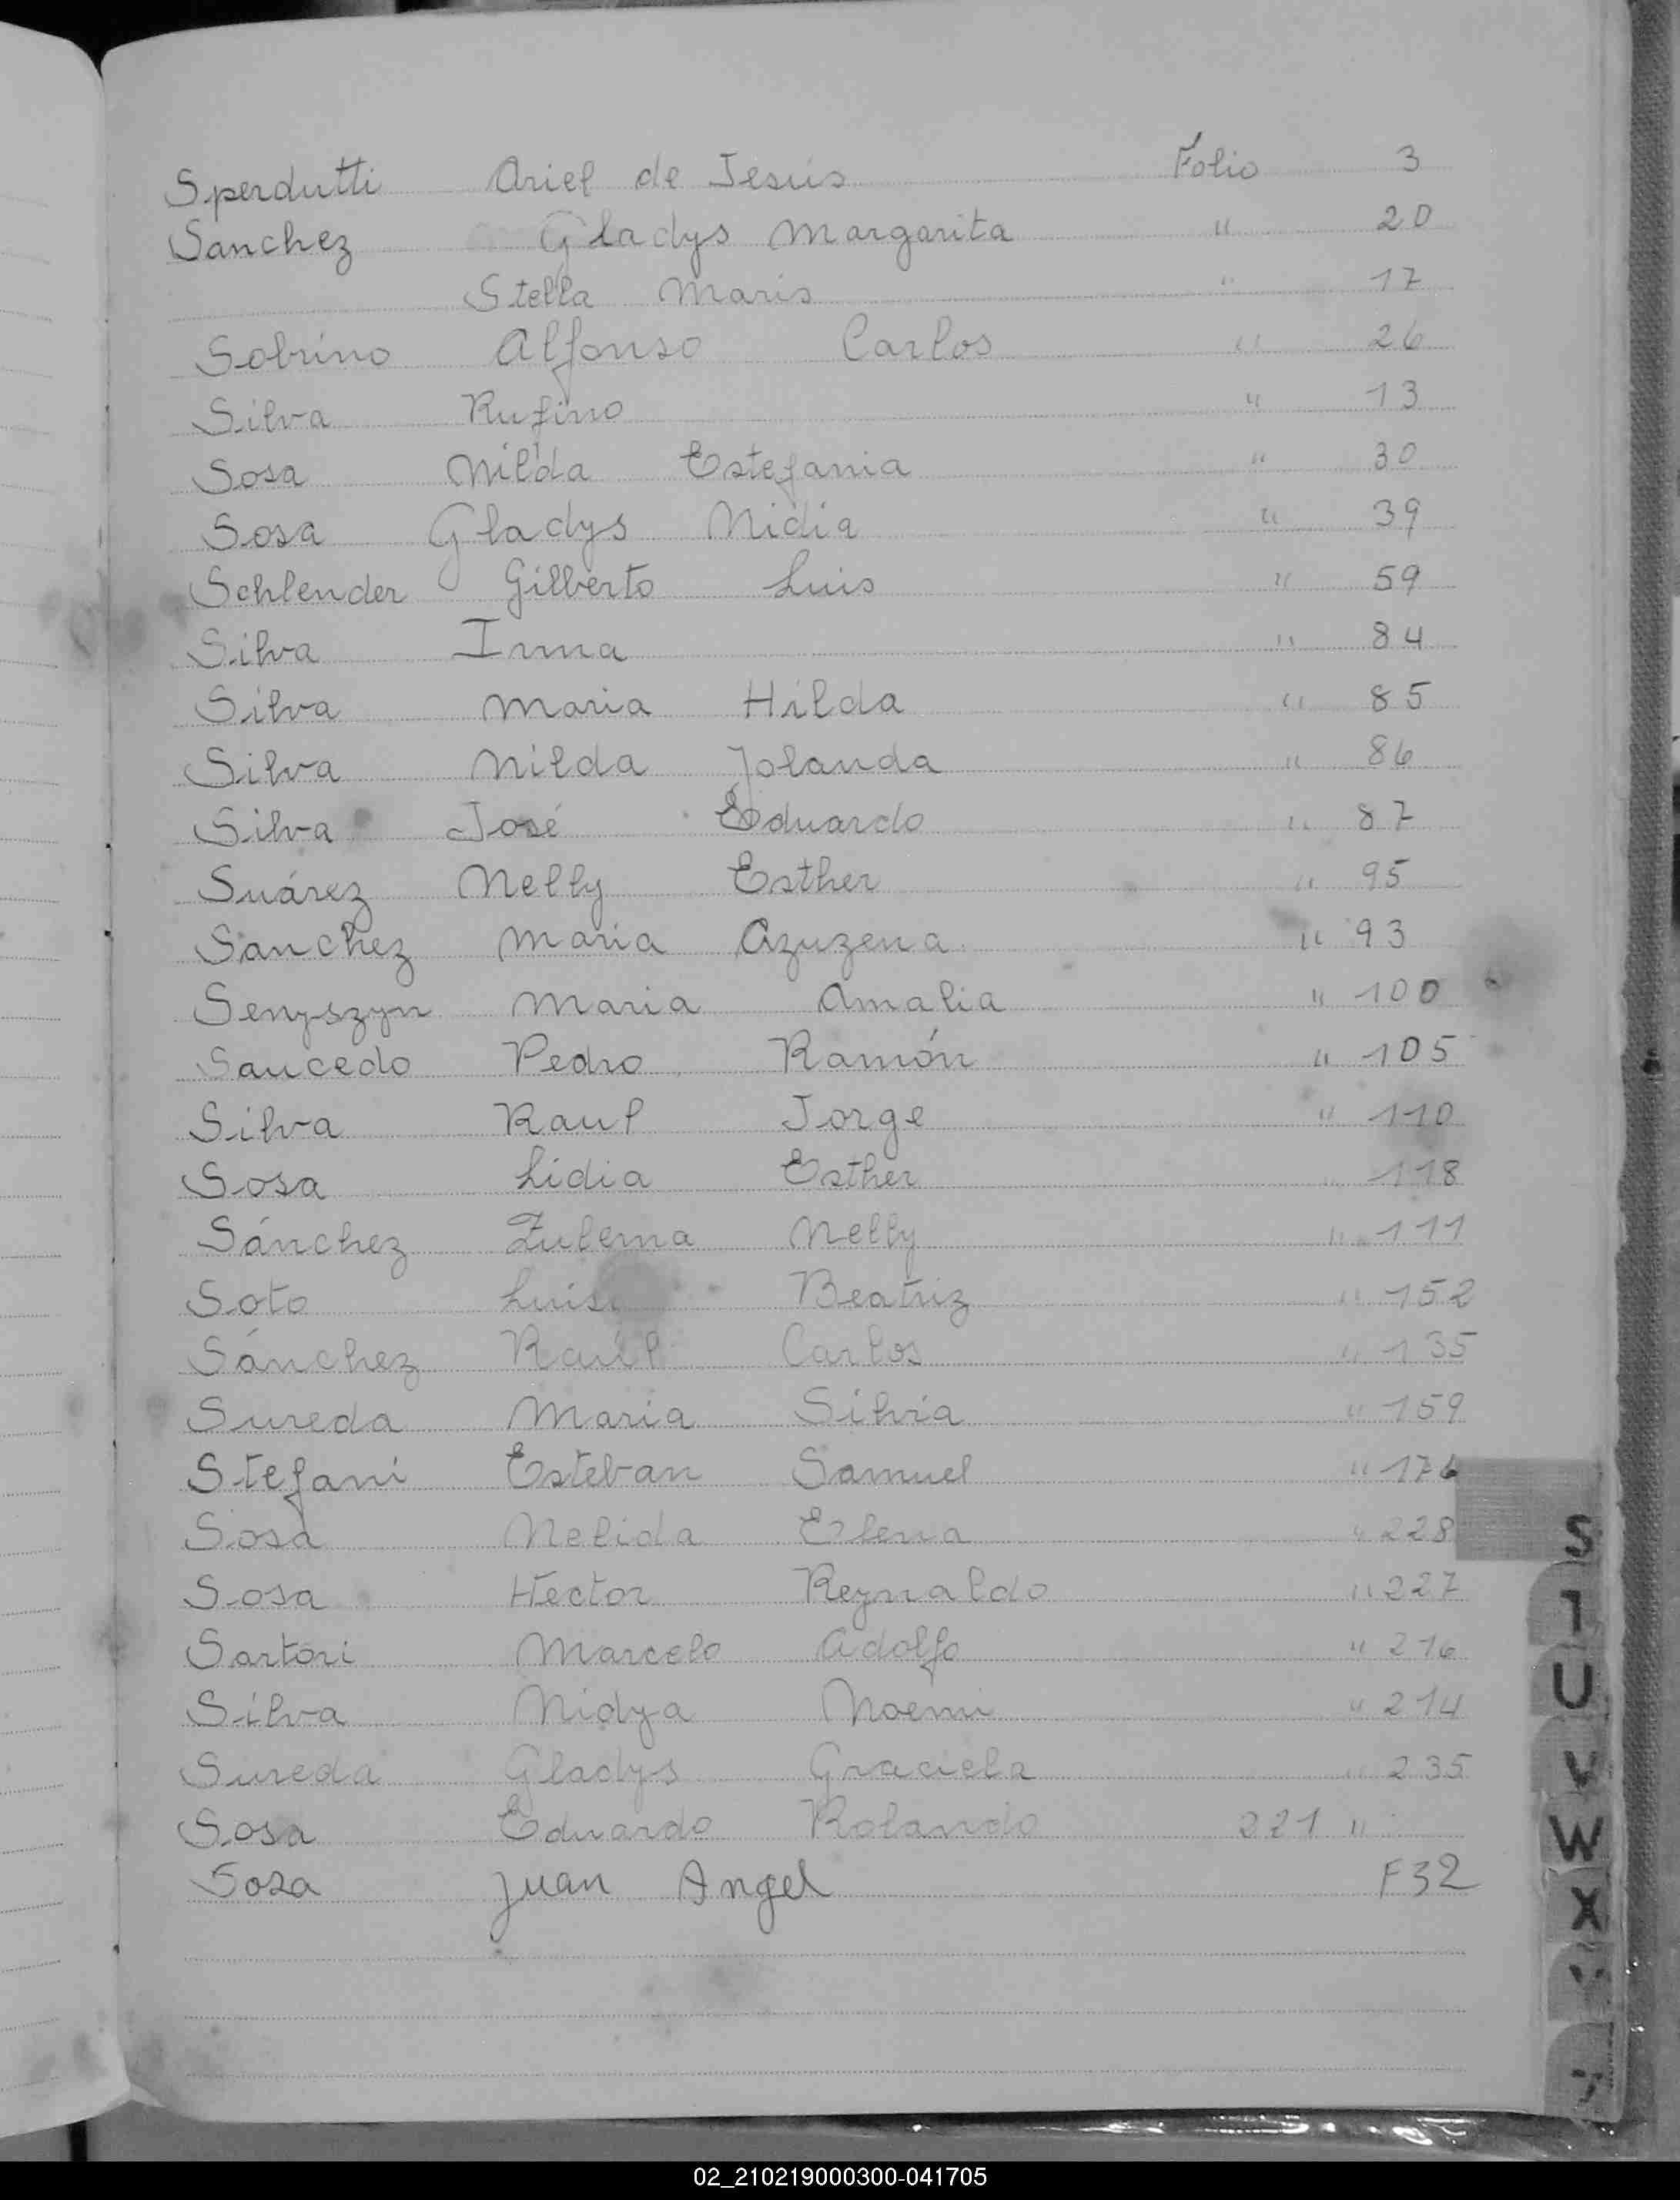 Sperdutti Ariel de Jesús Folio 3
Sanchez Gladys Margarita " 20
Stella Maris " 17
Sobrino Alfonso Carlos " 26
Silva Rufino " 13
Sosa Nilda Estefania " 30
Sosa Gladys Nidia " 39
Schlender Gilberto Luis " 59
Silva Irma " 84
Silva Maria Hilda " 85
Silva Nilda Jolanda " 86
Silva José Eduardo " 87
Suárez Nelly Esther " 95
Sanchez Maria Azuzena " 93
Senyszyn Maria Amalia " 100
Saucedo Pedro Ramón " 105
Silva Raul Jorge " 110
Sosa Lidia Esther " 118
Sánchez Zulema Nelly " 111
Soto Luisa Beatriz " 152
Sánchez Raúl Carlos " 135
Sureda Maria Silvia " 159
Stefani Esteban Samuel " 176
Sosa Nelida " 228
Sosa Hector Reynaldo " 227
Sartori Marcelo Adolfo " 216
Silva Nidya Noemi " 214
Sureda Gladys Graciela " 235
Sosa Eduardo Rolando 221 "
Sosa Juan Angel F32
S
T
U
V
W
X
Y
Z
02_210219000300-041705